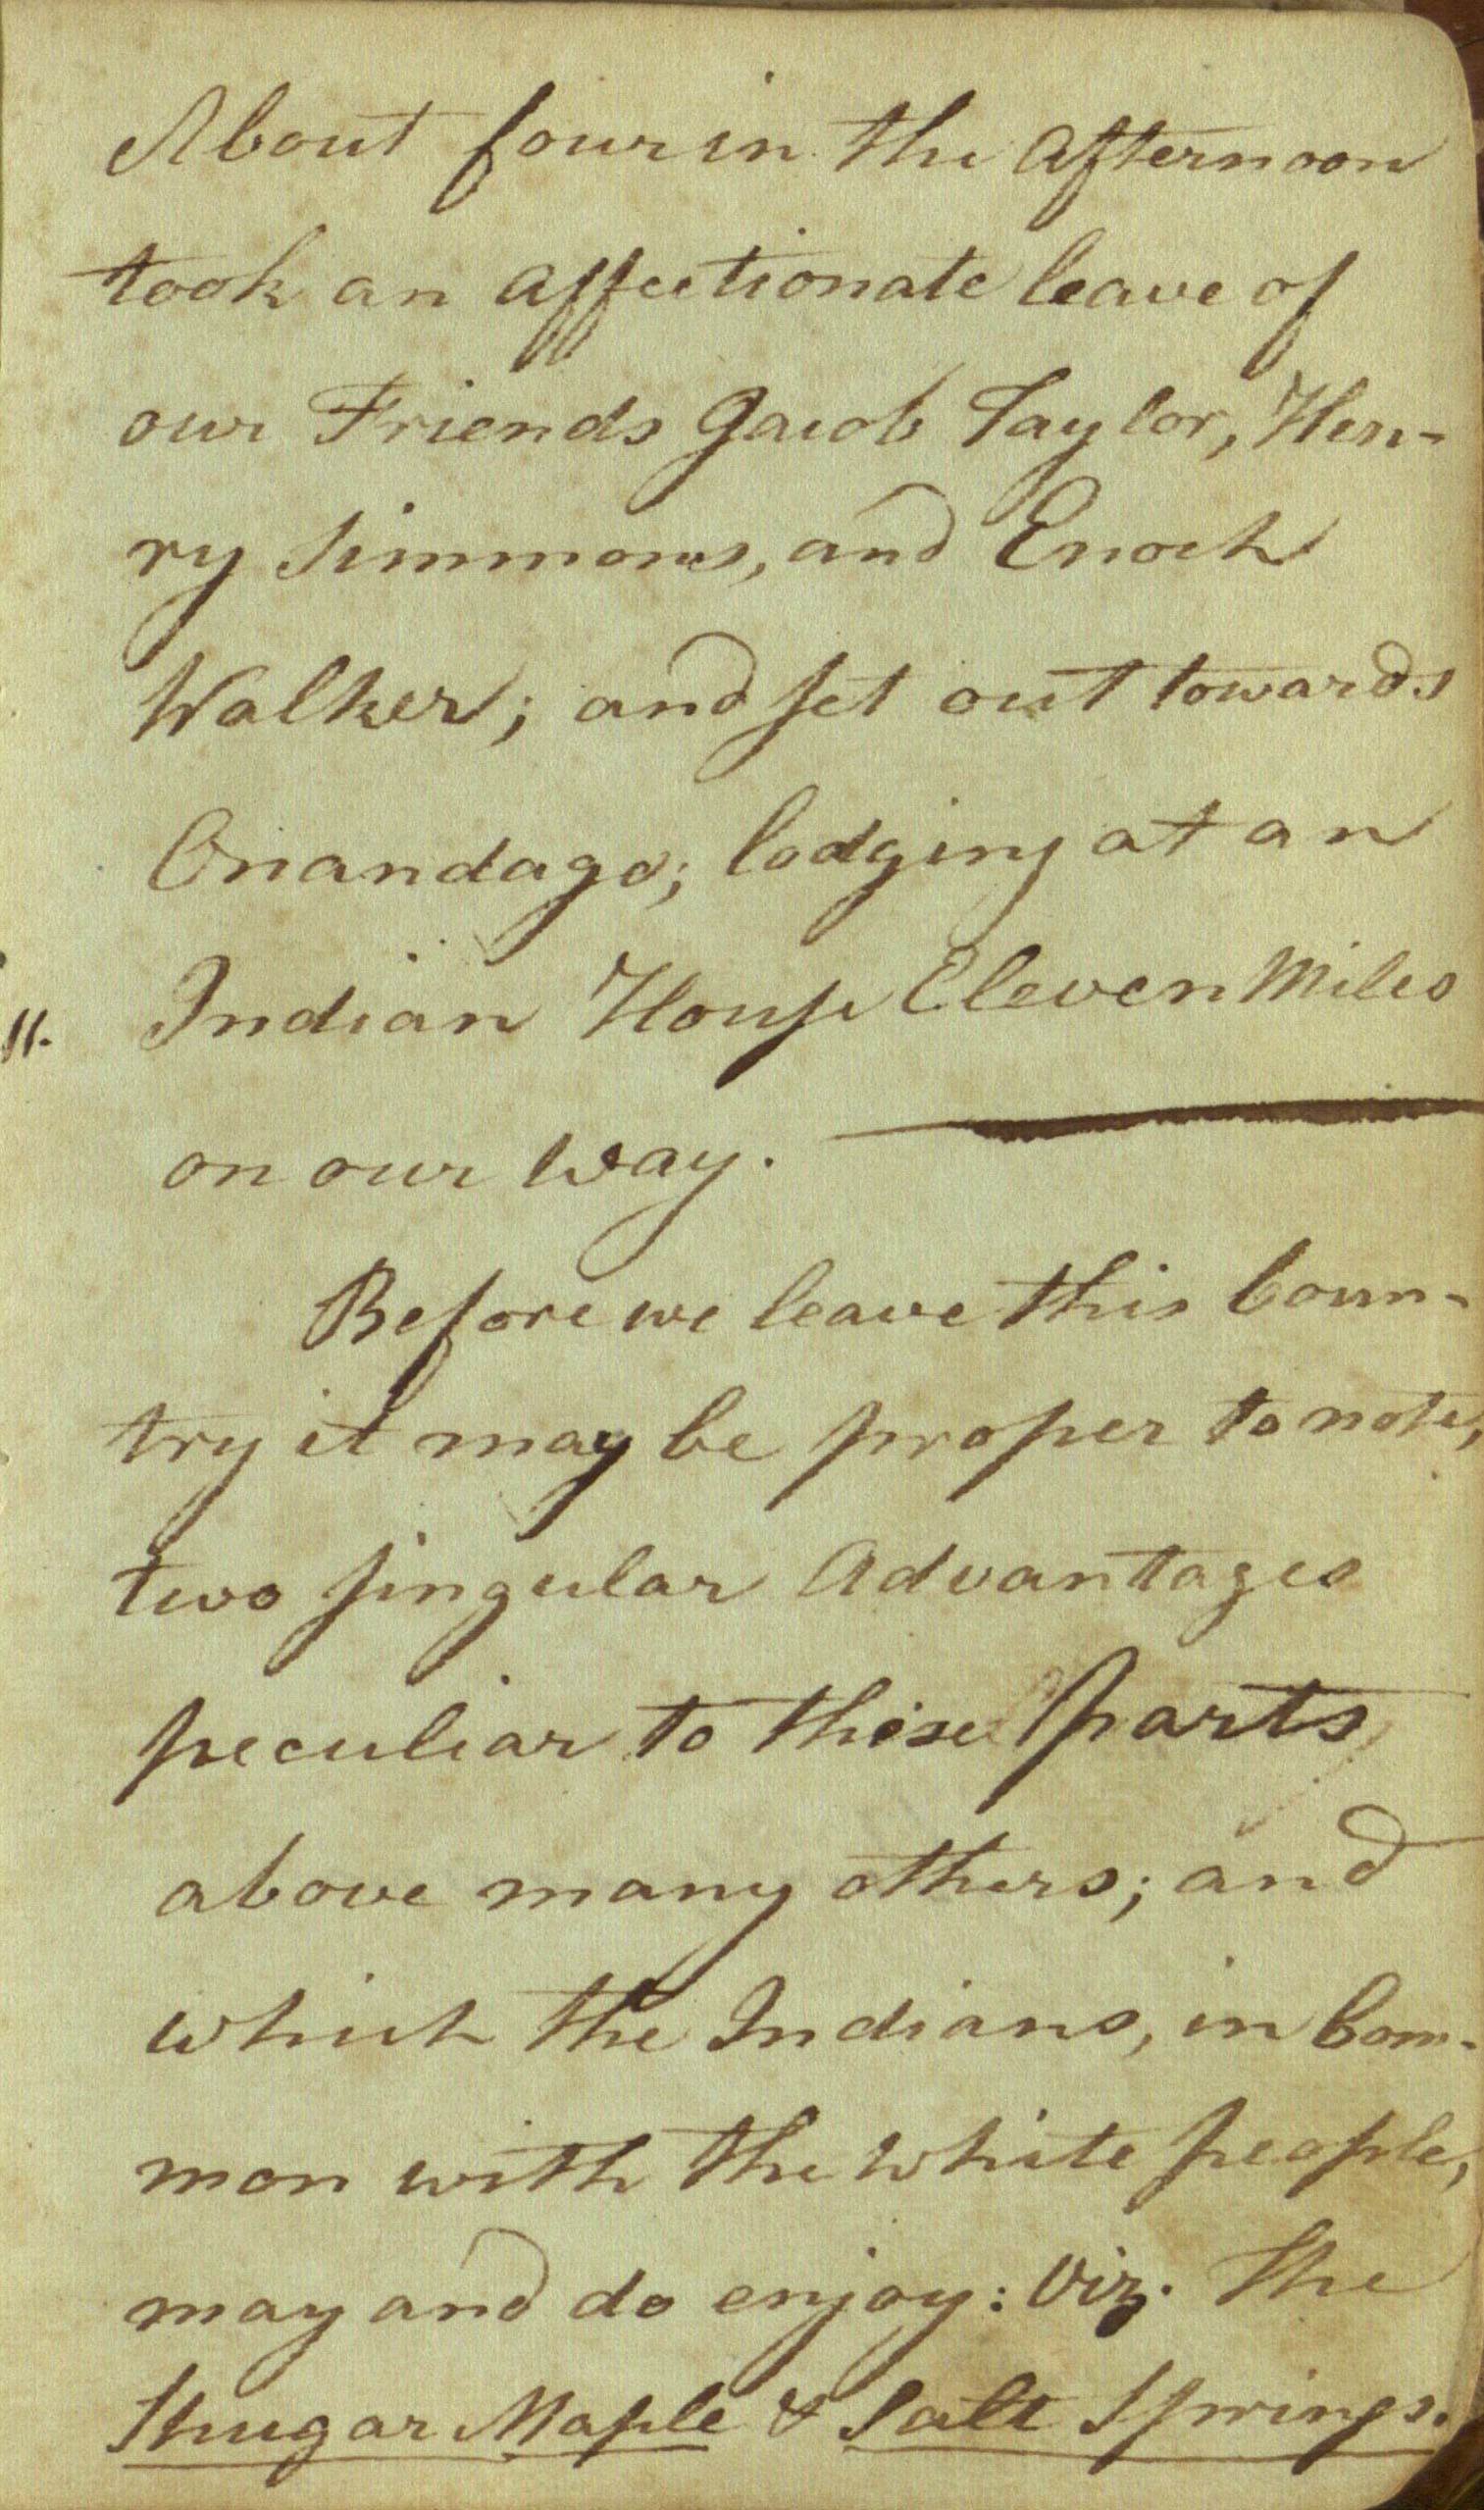 About four in the Afternoon
took an affectionate leave of
our Friends Jacob Taylor, Hen-
ry Simmons, and Enoch
Walker; and set out towards
Onandago; lodging at an
11. Indian House Eleven Miles
on our way.
Before we leave this Coun-
try it may be proper to note,
two singular Advantages
peculiar to these parts
above many others; and
which the Indians, in Com-
mon with the white people,
may and do enjoy: Viz. The
Shugar Maple & Salt Springs.